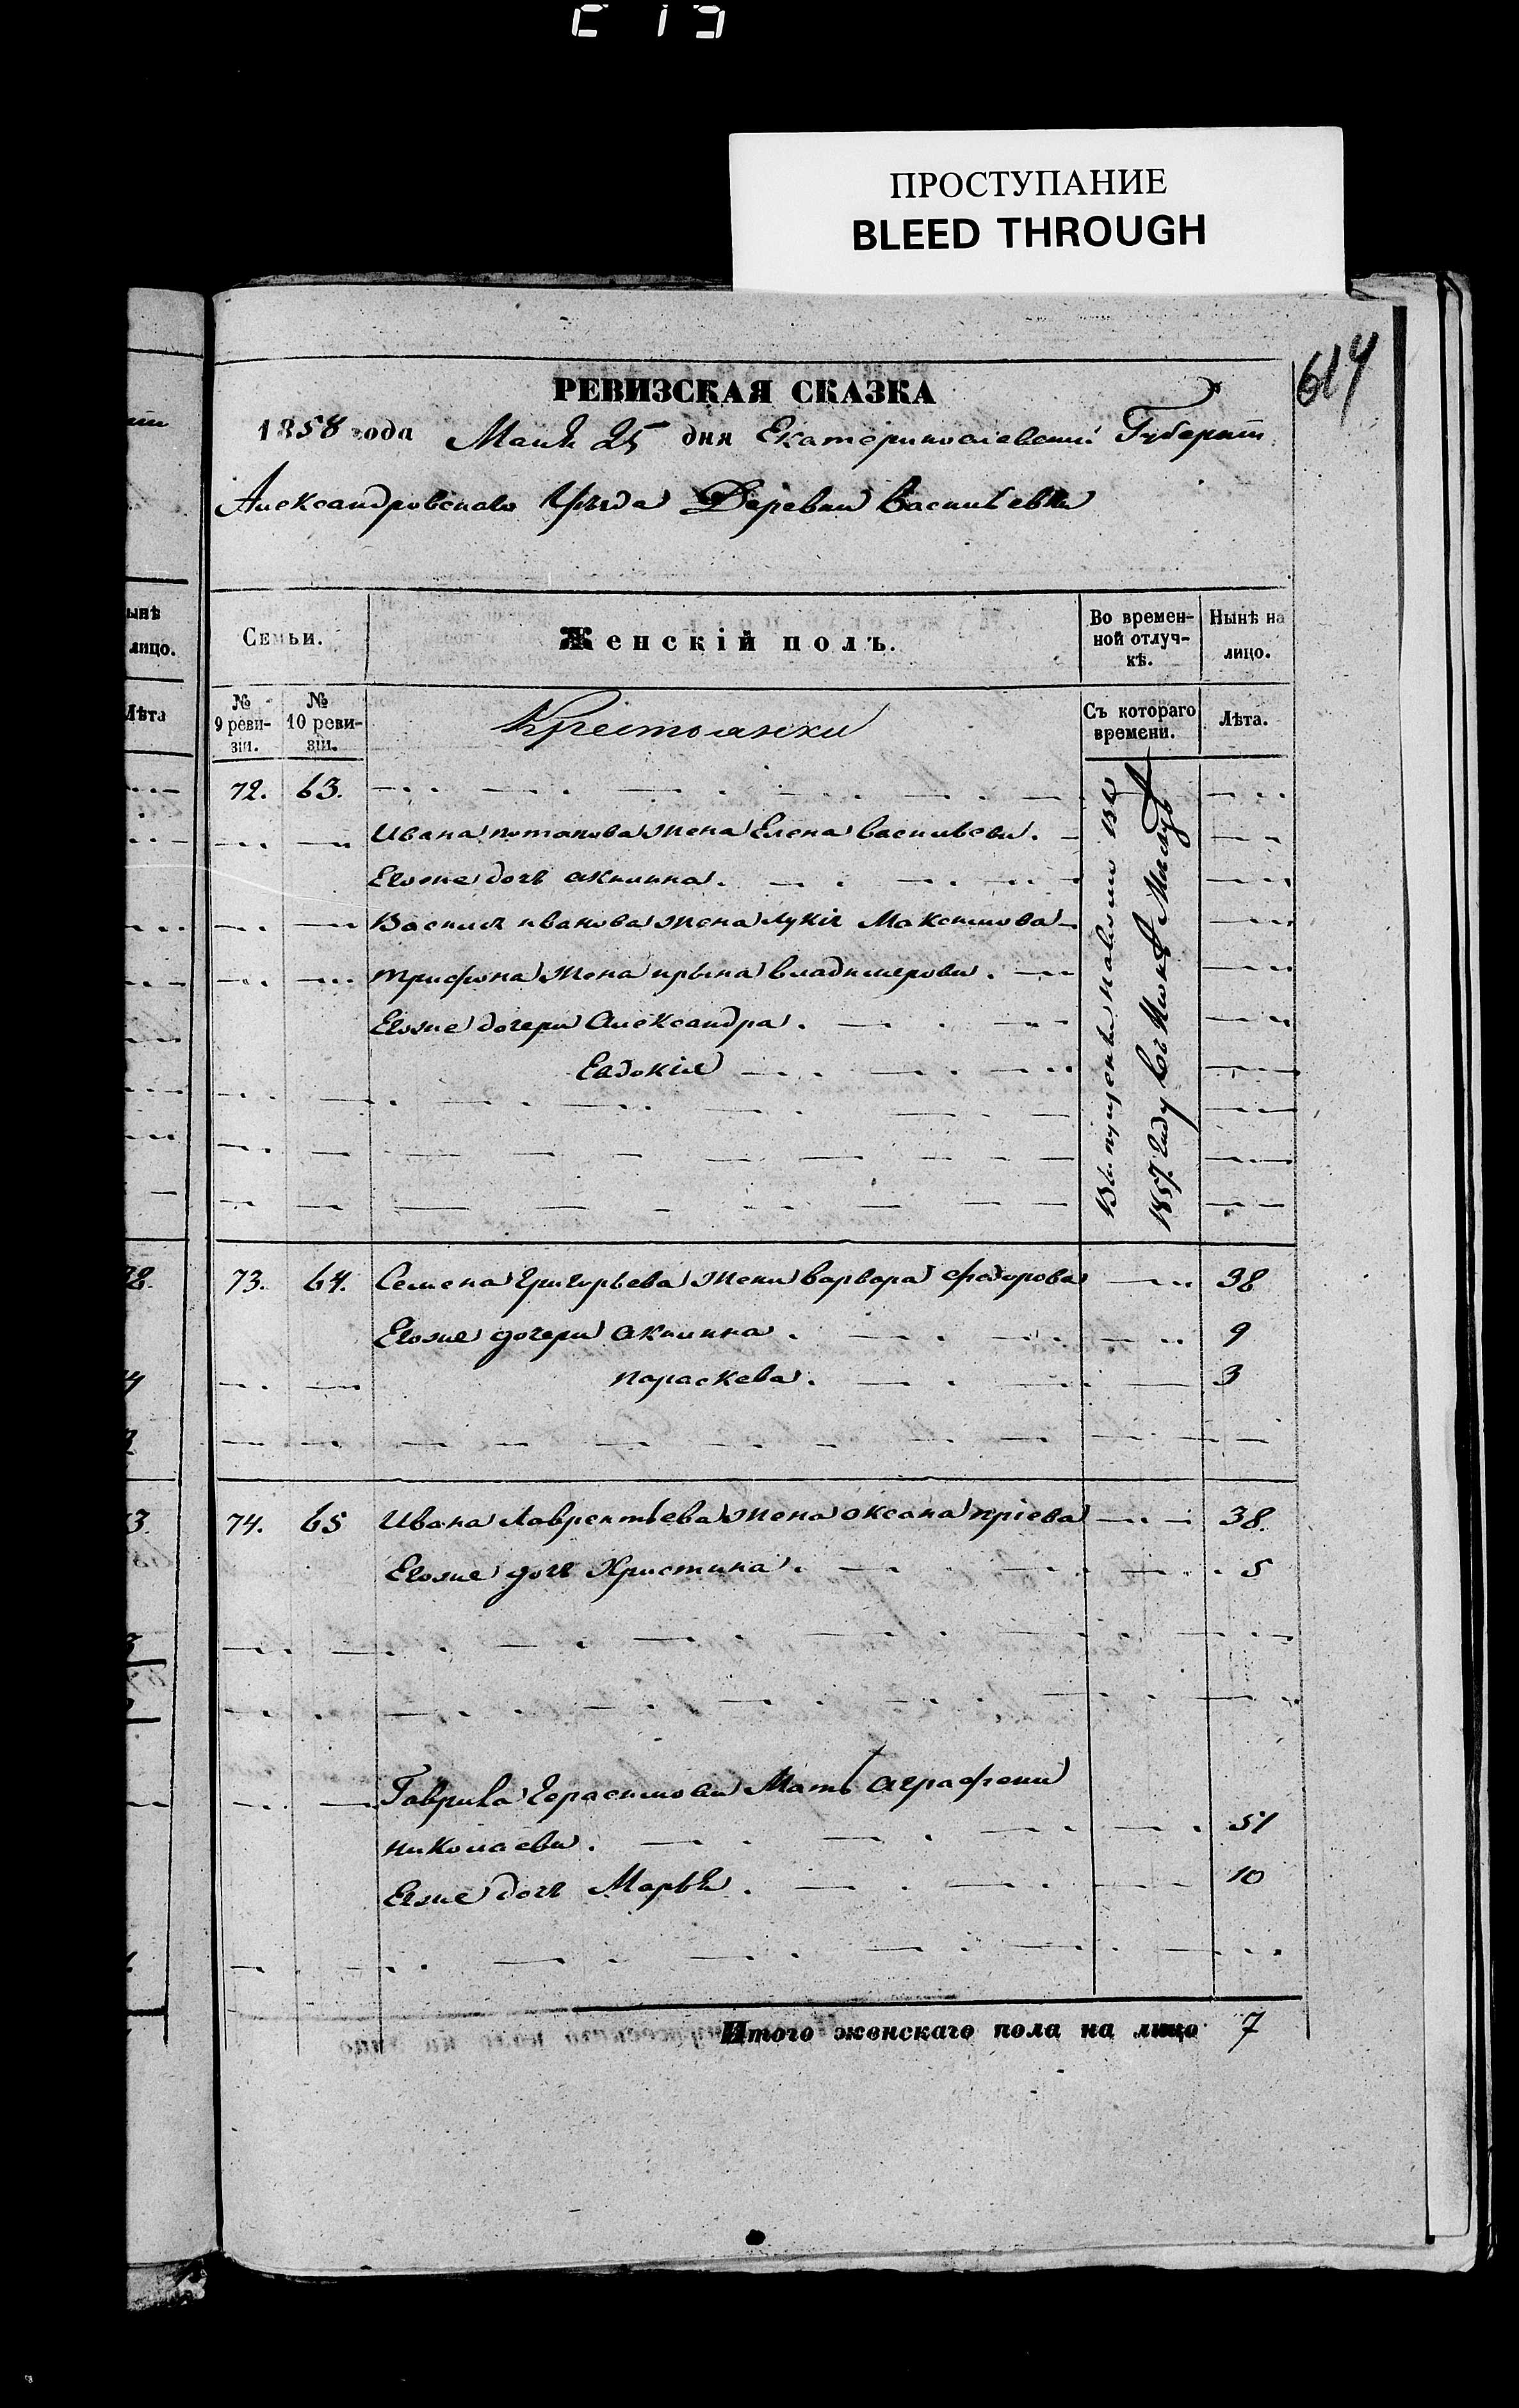 ПРОСТУПАНИЕ
BLEED THROUGH
614
РЕВИЗСКАЯ СКАЗКА
1858 года Маия 25 дня Екатеринославской Губернии
Александровскаго Уезда Деревни Васильевки
ынѣ
лицо.
Лѣта
Семьи.
Женскій полъ.
Во времен-
ной отлуч-
кѣ.
Нынѣ на
лицо.
№
9 реви-
зіи.
№
10 реви-
зіи.
Крестьянки
Съ котораго
времени.
Лѣта.
72. 63.
Ивана потапова жена Елена васильева.
Егоже дочь акилина.
Василия иванова жена лукия Максимова
трифона жена ирына владимерова.
Егоже дочери Александра.
Евдокия
на волю
1857 году
73. 64. Семена Григорьева жена варвара федорова 38
Егоже дочери акилина. 9
параскева. 3
74. 65 Ивана Лаврентьева жена оксана 38.
Егоже дочь Христина. 5
Гаврила Герасимова Мать аграфена
николаева. 51
Егоже дочь Марья. 10
Итого женскаго пола на лицо 7